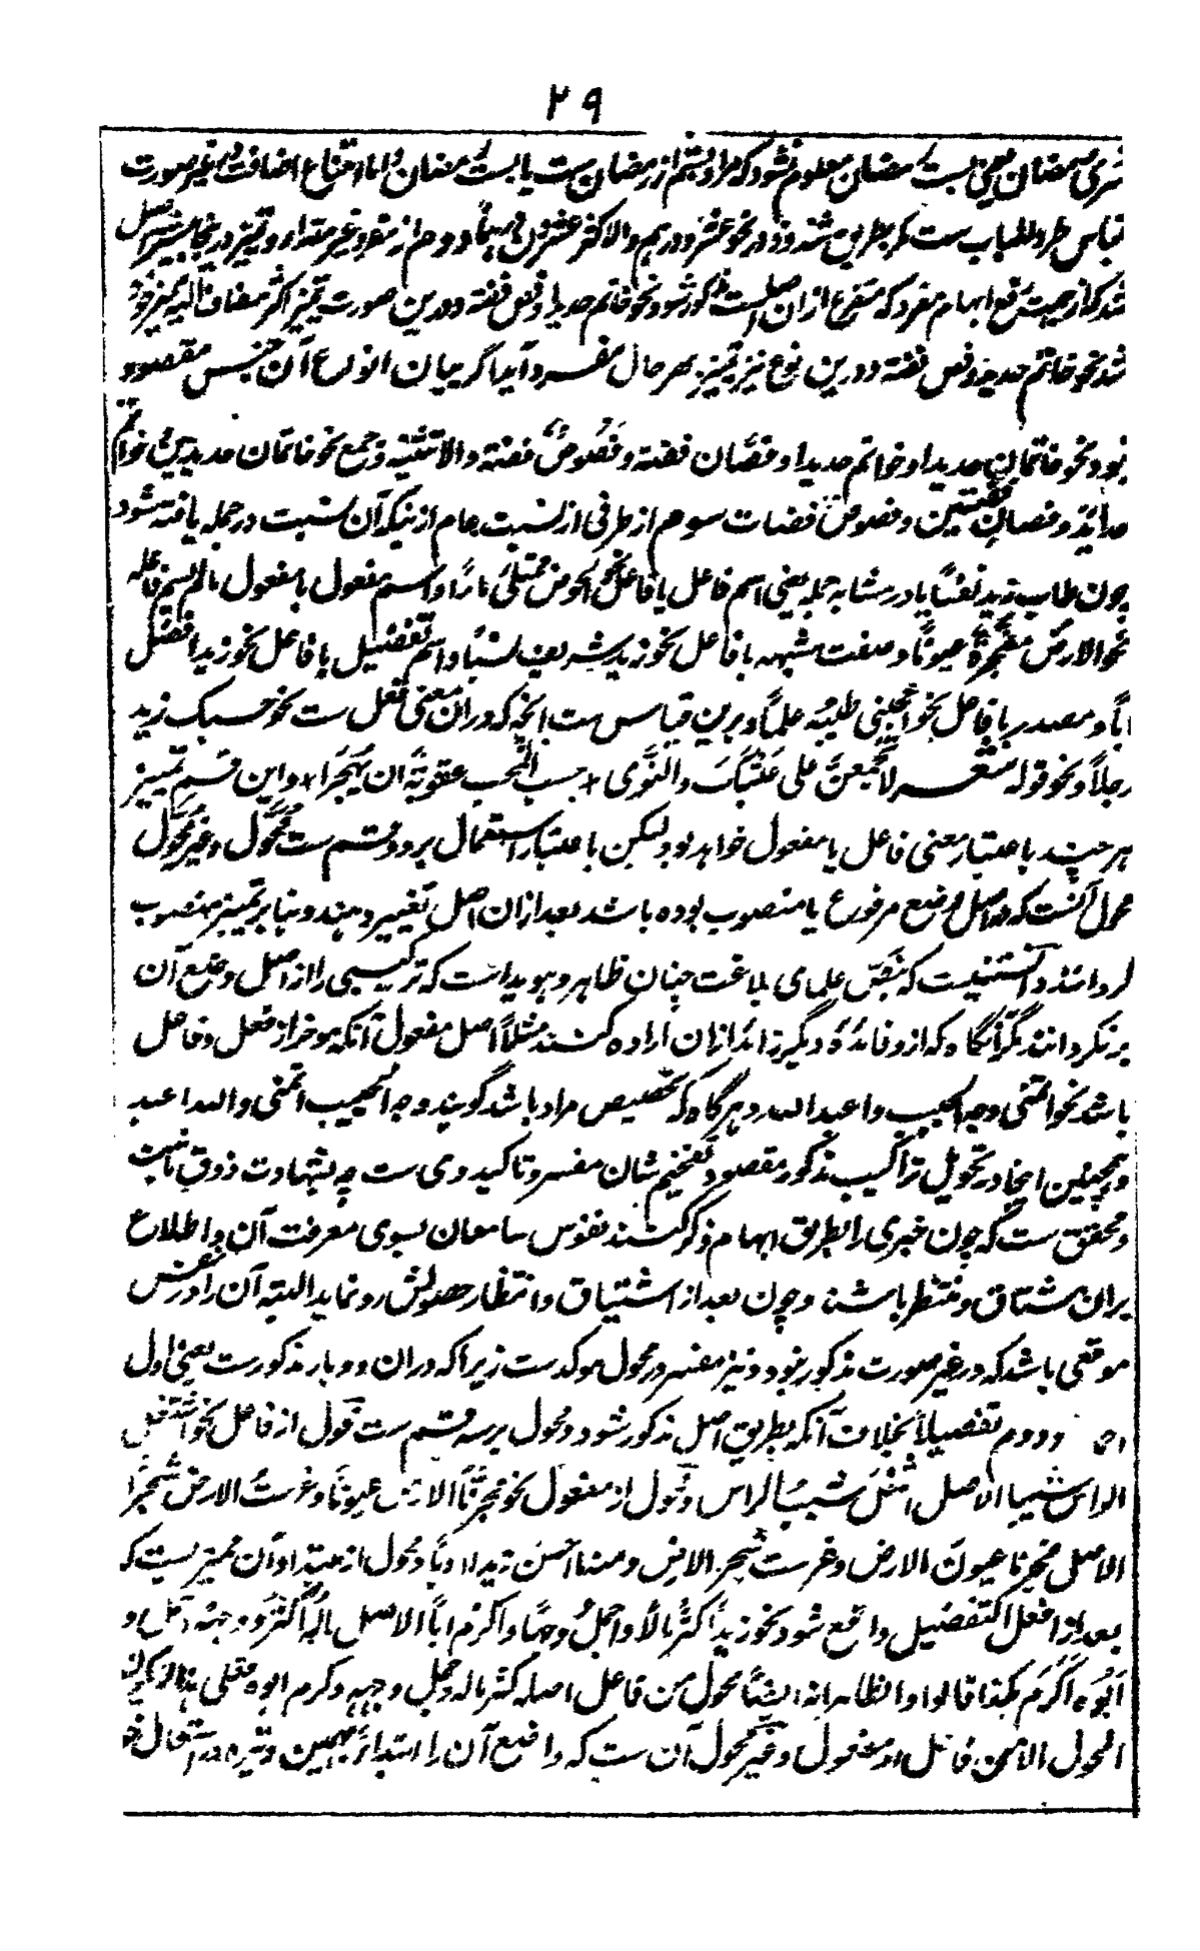 ۲۹
معلوم نشود که مراد بستم از رمضان ست یا بست رمضان و اما امتناع اضافت در غیر صورت
قیاس طرد للباب ست مگر بطریق شذوذ در نحو عشرو درهم والاکثر عشرون درهماً و دوم از مفرد غیر مقدار و تمیز درینجا بیشتر اصل
رفع ابهام مفرد که متفرع ازان اصل ست مذکور شود نحو خاتم حدیدا و فص فضة و درین صورت تمیز اکثر مضاف الیه ممیز خود
شد نحو خاتم حدید و فص فضة و درین نوع نیز تمیز بهر حال مفرد آید اگر بیان انواع آن جنس مقصود
نبود نحو خاتمان حدیدا و خواتم حدیدا و فصّان فضة و فُصُوصٌ فضة والا تثنیه و جمع نحو خاتمان حدیدین و خواتم
حدائد و فصان فضتین و فصوص فضات سوم از طرفی از نسبت عام ازینکه آن نسبت در جمله یافته شود
چون طاب زید نفساً یا در مشابه جمله یعنی اسم فاعل با فاعل نحو الحوض ممتلئ ماءً او اسم مفعول با مفعول مالم یسم فاعله
نحو الارض مفجرة عیوناً و صفت مشبهه با فاعل نحو زید شریف نسباً و اسم تفضیل با فاعل نحو زید افضل
اباً و مصدر با فاعل نحو اعجبنی طیبه علماً و برین قیاس ست انچه که دران معنی فعل ست نحو حسبک زید
رجلاً و نحو قوله شعر لا تجمعن علی عتبک والنوی * حسب المحب عقوبة ان یهجرا * و این قسم تمییز
هر چند باعتبار معنی فاعل یا مفعول خواهد بود لیکن باعتبار استعمال بر دو قسم ست محوّل و غیر محوّل
محول آنست که در اصل وضع مرفوع یا منصوب بوده باشد بعد ازان اصل تغییر دهند و بنا بر تمییز منصوب
گردانند و دانستنیست که بنصّ علمای بلاغت چنان ظاهر و هویداست که ترکیبی را از اصل وضع آن
برنگردانند مگر آنگاه که ازو فائده دیگر زائد ازان اراده کنند مثلاً اصل مفعول آنکه موخر از فعل و فاعل
باشد نحو اتمنی وجه الحبیب و اعبد الله و هر گاه که تخصیص مراد باشد گویند وجه الحبیب اتمنی و الله اعبد
و همچنین اینجا در تحویل تراکیب مذکور مقصود تفخیم شان مفسر و تاکید وی ست چه بشهادت ذوق ثابت
و محقق ست که چون خبری را بطریق ابهام ذکر کنند نفوس سامعان بسوی معرفت آن و اطلاع
بران مشتاق و منتظر باشند و چون بعد از اشتیاق و انتظار حصولش رو نماید البته آن را در نفس
موقعی باشد که در غیر صورت مذکور نبود و نیز مفسر در محول موکدست زیراکه دران دو بار مذکورست یعنی اول
و دوم تفصیلاً بخلاف آنکه بطریق اصل مذکور شود و محول بر سه قسم ست محوّل از فاعل نحو اشتعل
الراس شیبا الاصل اشتعل شیب الراس و محوّل از مفعول نحو فجرنا الارض عیوناً و غرست الارض شجراً
الاصل فجرنا عیون الارض و غرست شجر الارض و منه ما احسن زیدا ادباً و محول از مبتدا و آن ممیزیست که
بعد از افعل التفضیل واقع شود نحو زید اکثر مالاً و اجمل وجهاً و اکرم اباً الاصل ماله اکثر و وجهه اجمل و
ابوه اکرم هکذا قالوا و الظاهر انه ایضاً محول من فاعل اصله کثر ماله و جمل وجهه و کرم ابوه فعلی هذا لا یکون
المحول الا من فاعل او مفعول و غیر محول آن ست که واضع آن را ابتداءً بهمین وتیره در استعمال